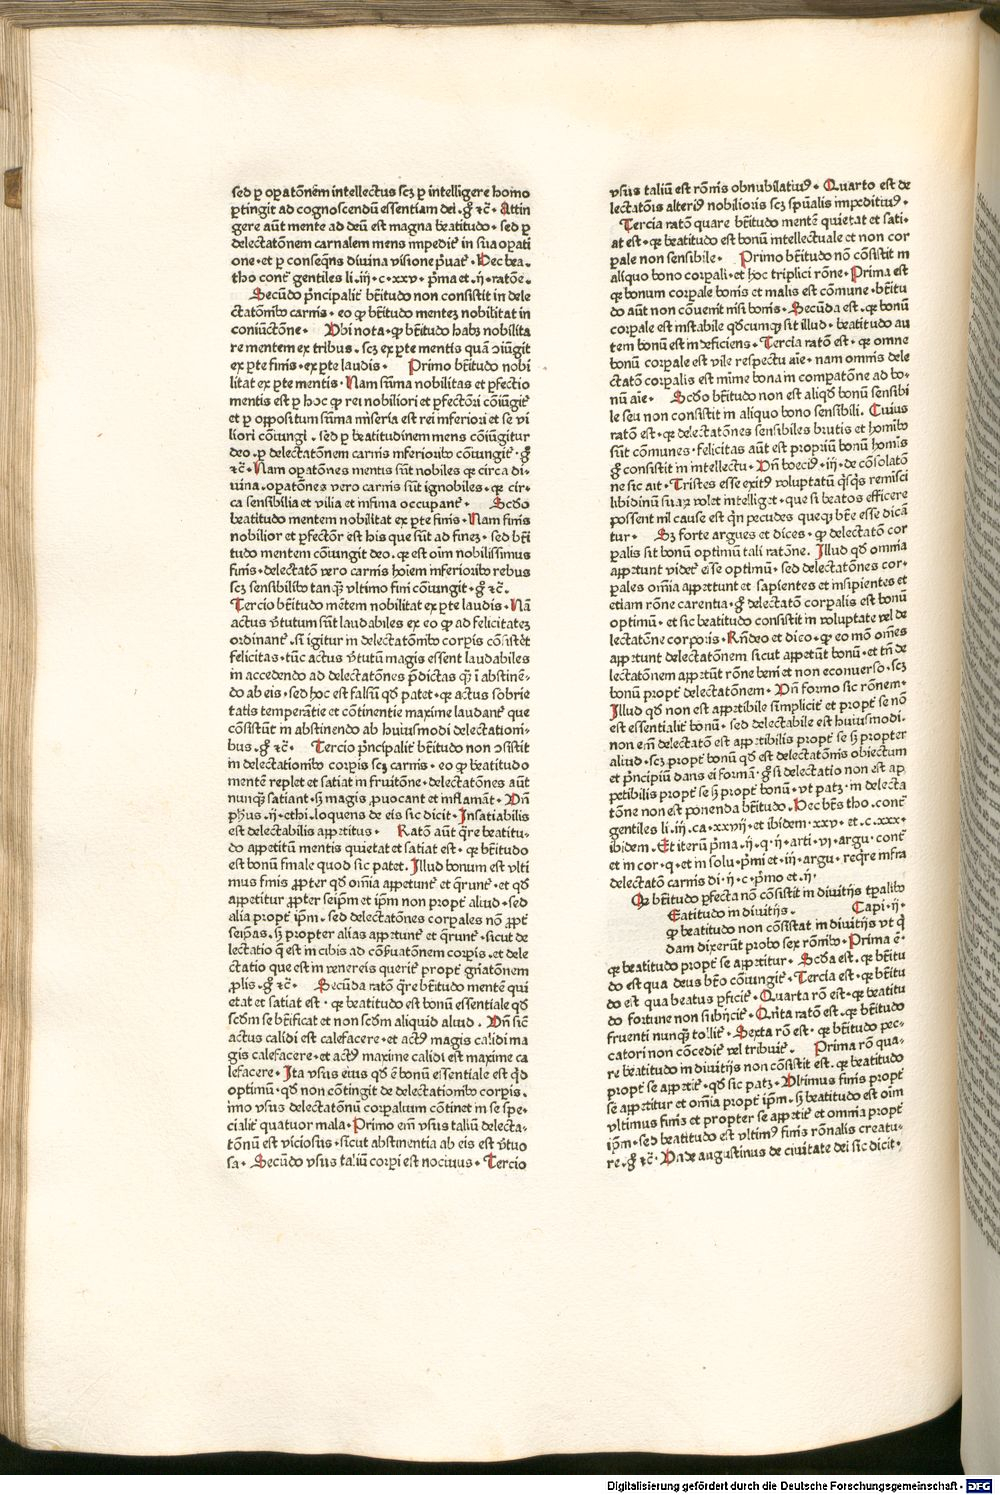 sed ꝑ oꝑatõnẽm intellectus scꝫ ꝑ intelligere homo
ꝑtingit ad cognoscendū essentiam dei · gͦ ⁊c̃ · Attin
gere aūt mente ad deū est magna beatitudo · sed ꝑ
delectatōnem carnalem mens impedit᷑ in sua oꝑati
one · et ꝑ conseq̃ns diuina visione p̃uat᷑ · Hec bea·
tho cont᷑ gentiles li · iij · c · xxv · p̃ma et · ij · ratōe ·
Secūdo p̃ncipalit᷑ bt̃itudo non consistit in dele
ctatōnibꝰ carnis · eo ꝙ bt̃itudo menteꝫ nobilitat in
coniūctōne · Vbi nota · ꝙ bt̃itudo habꝫ nobilita
re mentem ex tribus · scꝫ ex ꝑte mentis quā ↄiūgit
ex ꝑte finis · ex ꝑte laudis · Primo bt̃itudo nobi
litat ex ꝑte mentis · Nam sūma nobilitas et ꝑfectio
mentis est ꝑ hoc ꝙ rei nobiliori et ꝑfectōri cōiūgit᷑
et ꝑ oppositum sūma miseria est rei inferiori et se vi
liori cōiungi · sed ꝑ beatitudinem mens cōiūgitur
deo · ꝑ delectatōnem carnis inferioribꝰ cōiungit᷑ · gͦ
⁊c̃ · Nam oꝑatōnes mentis sūt nobiles ꝙ circa di·
uina · oꝑatōnes vero carnis sūt ignobiles · ꝙ cir·
ca sensibilia et vilia et infima occupant᷑ · Scdo
beatitudo mentem nobilitat ex ꝑte finis · Nam finis
nobilior et ꝑfectōr est his que sūt ad fineꝫ · sed bt̃i
tudo mentem cōiungit deo · ꝙ est oīm nobilissimus
finis · delectatō vero carnis hoīem inferioribꝰ rebus
scꝫ sensibilibꝰ tanqꝫ vltimo fini cōiungit · gͦ ⁊c̃ ·
Tercio bt̃itudo mẽtem nobilitat ex ꝑte laudis · Nā
actus v̓tutum sūt laudabiles ex eo ꝙ ad felicitateꝫ
ordinant᷑ · si igitur in delectatōnibꝰ corꝑis cōsistēt
felicitas · tūc actus v̓tutū magis essent laudabiles
in accedendo ad delectatōnes p̃dictas qꝫ ī abstinē·
do ab eis · sed hoc est falsū qd̓ patet · ꝙ actus sobrie
tatis temperātie et cōtinentie maxime laudant᷑ que
cōsistūt in abstinendo ab huiusmodi delectationi·
bus · gͦ ⁊c̃ · Tercio p̃ncipalit᷑ bt̃itudo non ↄsistit
in delectationibꝰ corꝑis scꝫ carnis · eo ꝙ beatitudo
mentē replet et satiat in fruitōne · delectatōnes aūt
nunqꝫ satiant · sꝫ magis ꝓuocant et inflamāt · Vñ
ph̓us · ij · ethi · loquens de eis sic dicit · Insatiabilis
est delectabilis appetitus · Ratō aūt q̃re beatitu·
do appetitū mentis quietat et satiat est · ꝙ bt̃itudo
est bonū finale quod sic patet · Illud bonum est vlti
mus finis ꝓpter qd̓ om̃ia appetunt᷑ et q̃runt᷑ · et qd̓
appetitur ꝓpter seip̃m et ip̃m non propt᷑ aliud · sed
alia propt᷑ ip̃m · sed delectatōnes corꝑales nō ꝓpt᷑
seip̃as · sꝫ propter alias appetunt᷑ et q̃runt᷑ · sicut de
lectatio q̃ est in cibis ad cōẜuatōnem corꝑis · et dele
ctatio que est in venereis querit᷑ propt᷑ gñatōnem
ꝓlis · gͦ ⁊c̃ · Secūda ratō q̃re bt̃itudo mentē qui
etat et satiat est · ꝙ beatitudo est bonū essentiale qd̓
scd̓m se bt̃ificat et non scd̓m aliquid aliud · Vñ sic̃
actus calidi est calefacere · et actꝰ magis calidi ma
gis calefacere · et actꝰ maxime calidi est maxime ca
lefacere · Ita vsus eius qd̓ ē bonū essentiale est qd̓
optimū · qd̓ non cōtingit de delectationibꝰ corꝑis ·
imo vsus delectatōnū corꝑalium cōtinet in se spe·
cialit᷑ quatuor mala · Primo em̃ vsus taliū delecta·
tōnū est viciosus · sicut abstinentia ab eis est v̓tuo
sa · Secūdo vsus taliū corꝑi est nociuus · Tercio
vsus taliū est rōnis obnubilatiuꝰ · Quarto est de
lectatōnis alteriꝰ nobilioris scꝫ sp̃ualis impeditiuꝰ ·
Tercia ratō quare bt̃itudo mentē quietat et sati·
at est · ꝙ beatitudo est bonū intellectuale et non cor
ꝑale non sensibile · Primo bt̃itudo nō cōsistit in
aliquo bono corꝑali · et hoc triplici rōne · Prima est
ꝙ bonum corꝑale bonis et malis est cōmune · bt̃itu
do aūt non cōuenit nisi bonis · Secūda est · ꝙ bonū
corꝑale est instabile qd̓cunqꝫ sit illud · beatitudo au
tem bonū est indeficiens · Tercia ratō est · ꝙ omne
bonū corꝑale est vile respectu aīe · nam omnis dele
ctatō corꝑalis est mīme bona in comꝑatōne ad bo·
nū aīe · Scdo bt̃itudo non est aliqd̓ bonū sensibi
le seu non consistit in aliquo bono sensibili · Cuius
ratō est · ꝙ delectatōnes sensibiles brutis et hoībꝰ
sūt cōmunes · felicitas aūt est propriū bonū homīs
gͦ consistit in intellectu · Vñ boeciꝰ · iij · de cōsolatō
ne sic ait · Tristes esse exitꝰ voluptatū q̃sq̃s remisci
libidinū suaꝝ volet intelliget · que si beatos efficere
possent nil cause est q̃n pecudes queqꝫ bt̃e esse dicā
tur · Sꝫ forte argues et dices · ꝙ delectatō cor
ꝑalis sit bonū optimū tali ratōne · Illud qd̓ om̃ia
appetunt videt᷑ esse optimū · sed delectatōnes cor·
ꝑales om̃ia appetunt et sapientes et insipientes et
etiam rōne carentia · gͦ delectatō corꝑalis est bonū
optimū · et sic beatitudo consistit in voluptate vel de
lectatōne corꝑoris · Rñdeo et dico · ꝙ eo mō om̃es
appetunt delectatōnem sicut appetūt bonū · et tñ de
lectatōnem appetūt rōne boni et non econuerso · scꝫ
bonū propt᷑ delectatōnem · Vñ formo sic rōnem ·
Illud qd̓ non est appetibile simplicit᷑ et propt᷑ se nō
est essentialit᷑ bonū · sed delectabile est huiusmodi ·
non em̃ delectatō est appetibilis propt᷑ se sꝫ propter
aliud · scꝫ propt᷑ bonū qd̓ est delectatōnis obiectum
et p̃ncipiū dans ei formā · gͦ si delectatio non est ap
petibilis propt᷑ se sꝫ propt᷑ bonū · vt patꝫ · in delecta
tōne non est ponenda bt̃itudo · Hec bt̃s tho · cont᷑
gentiles li · iij · ca · xxvij · et ibidem · xxv · et · c · xxx ·
ibidem · Et iterū p̃ma · ij · q · ij · arti · vj · argu · cont᷑
et in cor · q · et in solu · p̃mi et · iij · argu · req̃re infra
delectatō carnis di · ij · c · p̃mo et · ij ·
Q bt̃itudo ꝑfecta nō cōsistit in diuitijs tꝑalibꝰ
Eatitudo in diuitijs · Capi · ij ·
ꝙ beatitudo non cōsistat in diuitijs vt q̓
dam dixerūt probo sex rōnibꝰ · Prima ē ·
ꝙ beatitudo propt᷑ se appetitur · Scda est · ꝙ bt̃itu
do est qua deus bt̃o cōiungit᷑ · Tercia est · ꝙ bt̃itu
do est qua beatus ꝑficit᷑ · Quarta rō est · ꝙ beatitu
do fortune non subijcit᷑ · Qṅta ratō est · ꝙ bt̃itudo
fruenti nunqꝫ tollit᷑ · Sexta rō est · ꝙ bt̃itudo pec·
catori non cōcedit᷑ vel tribuit᷑ · Prima rō qua·
re beatitudo in diuitijs non cōsistit est · ꝙ beatitudo
propt᷑ se appetit᷑ · qd̓ sic patꝫ · Vltimus finis propt᷑
se appetitur et om̃ia propt᷑ ip̃m · sꝫ beatitudo est oīm
vltimus finis et propter se appetit᷑ et omnia propt᷑
ip̃m · sed beatitudo est vltimꝰ finis rōnalis creatu·
re · gͦ ⁊c̃ · Vnde augustinus de ciuitate dei sic dicit ·
Digitalisierung gefördert durch die Deutsche Forschungsgemeinschaft - DFG